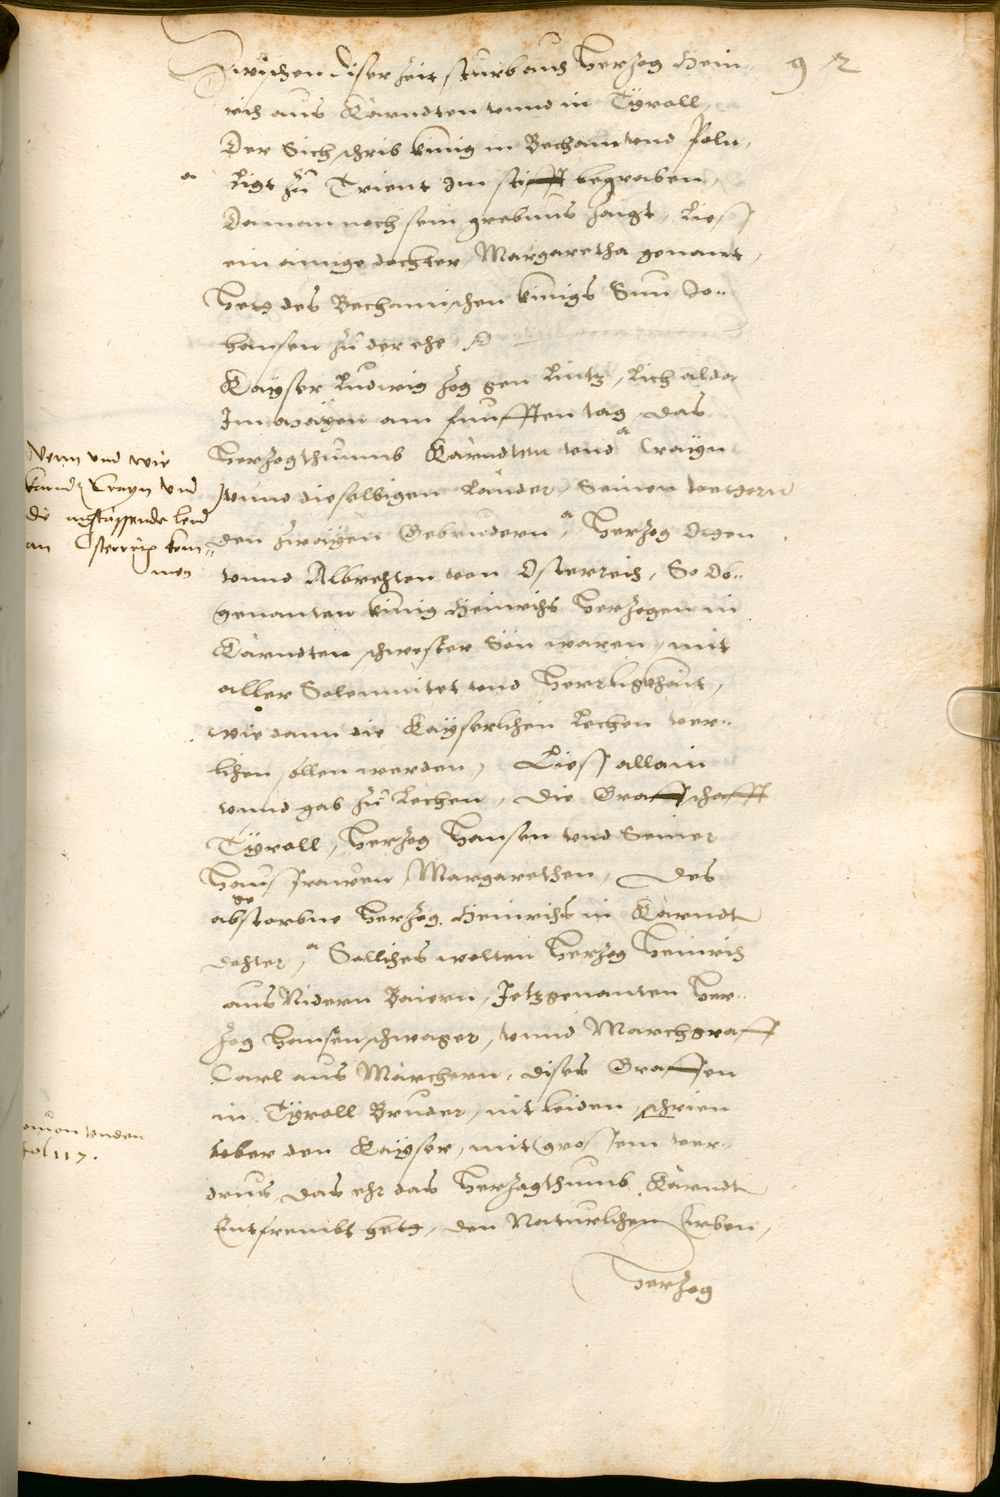 92
Zwischen diser zeit sturb auch Herzog Hein-
rich aus Kärndten vnnd in Tyroll,
Der Sich schrib künig in Bechaim vnd Poln,
Ligt zu Trient Im stifft begraben,
Da man noch sein grebnus zaigt, Liess
ein ainige dochter Margaretha genant,
Hetz des Bechamischen künigs Sun Jo-
hansen zu der ehe
Kayser Ludwig zog gen Lintz, Lich alda
Im mayen am funfften tag, das
Herzogthumb Kärndten vnd Crayn
vnnd dieselbigen Länder, Seinen vettern
den zwayen Gebrudern, Herzog Otzen
vnnd Albrechten von Osterreich, So ob-
genanten künig Heinrichs Herzogen in
Kärndten schwester Sön waren, mit
aller Solennitet vnd Herrligkhait,
wie dann die Kayserlichen Lechen ver-
lihen sollen werden, Liess allain
vnnd gab zu Lechen, die Graffschafft
Tyroll, Herzog Hansen vnd Seiner
Hausfrawen Margarethen, Des
abgestorbne Herzog Heinrichs in Kärndt
dohter, Solliches wolten Herzog Heinrich
aus Nidern Baiern, Jetzgenanten Her-
zog Hansen schwager, vnnd Marchgraff
Carl aus Märchern, dises Graffen
in Tyroll Bruder, nit leiden, schrien
vber den Kayser, mit grossem ver-
drus, das ehr das Herzogthumb Kärndt
Entfrembt hetz, den Naturlichen Erben,
Herzog
Wenn vnd wie
karndt Crayn vnd
die anstossende lend
an Osterreich kom-
men
vnden
fol 117.